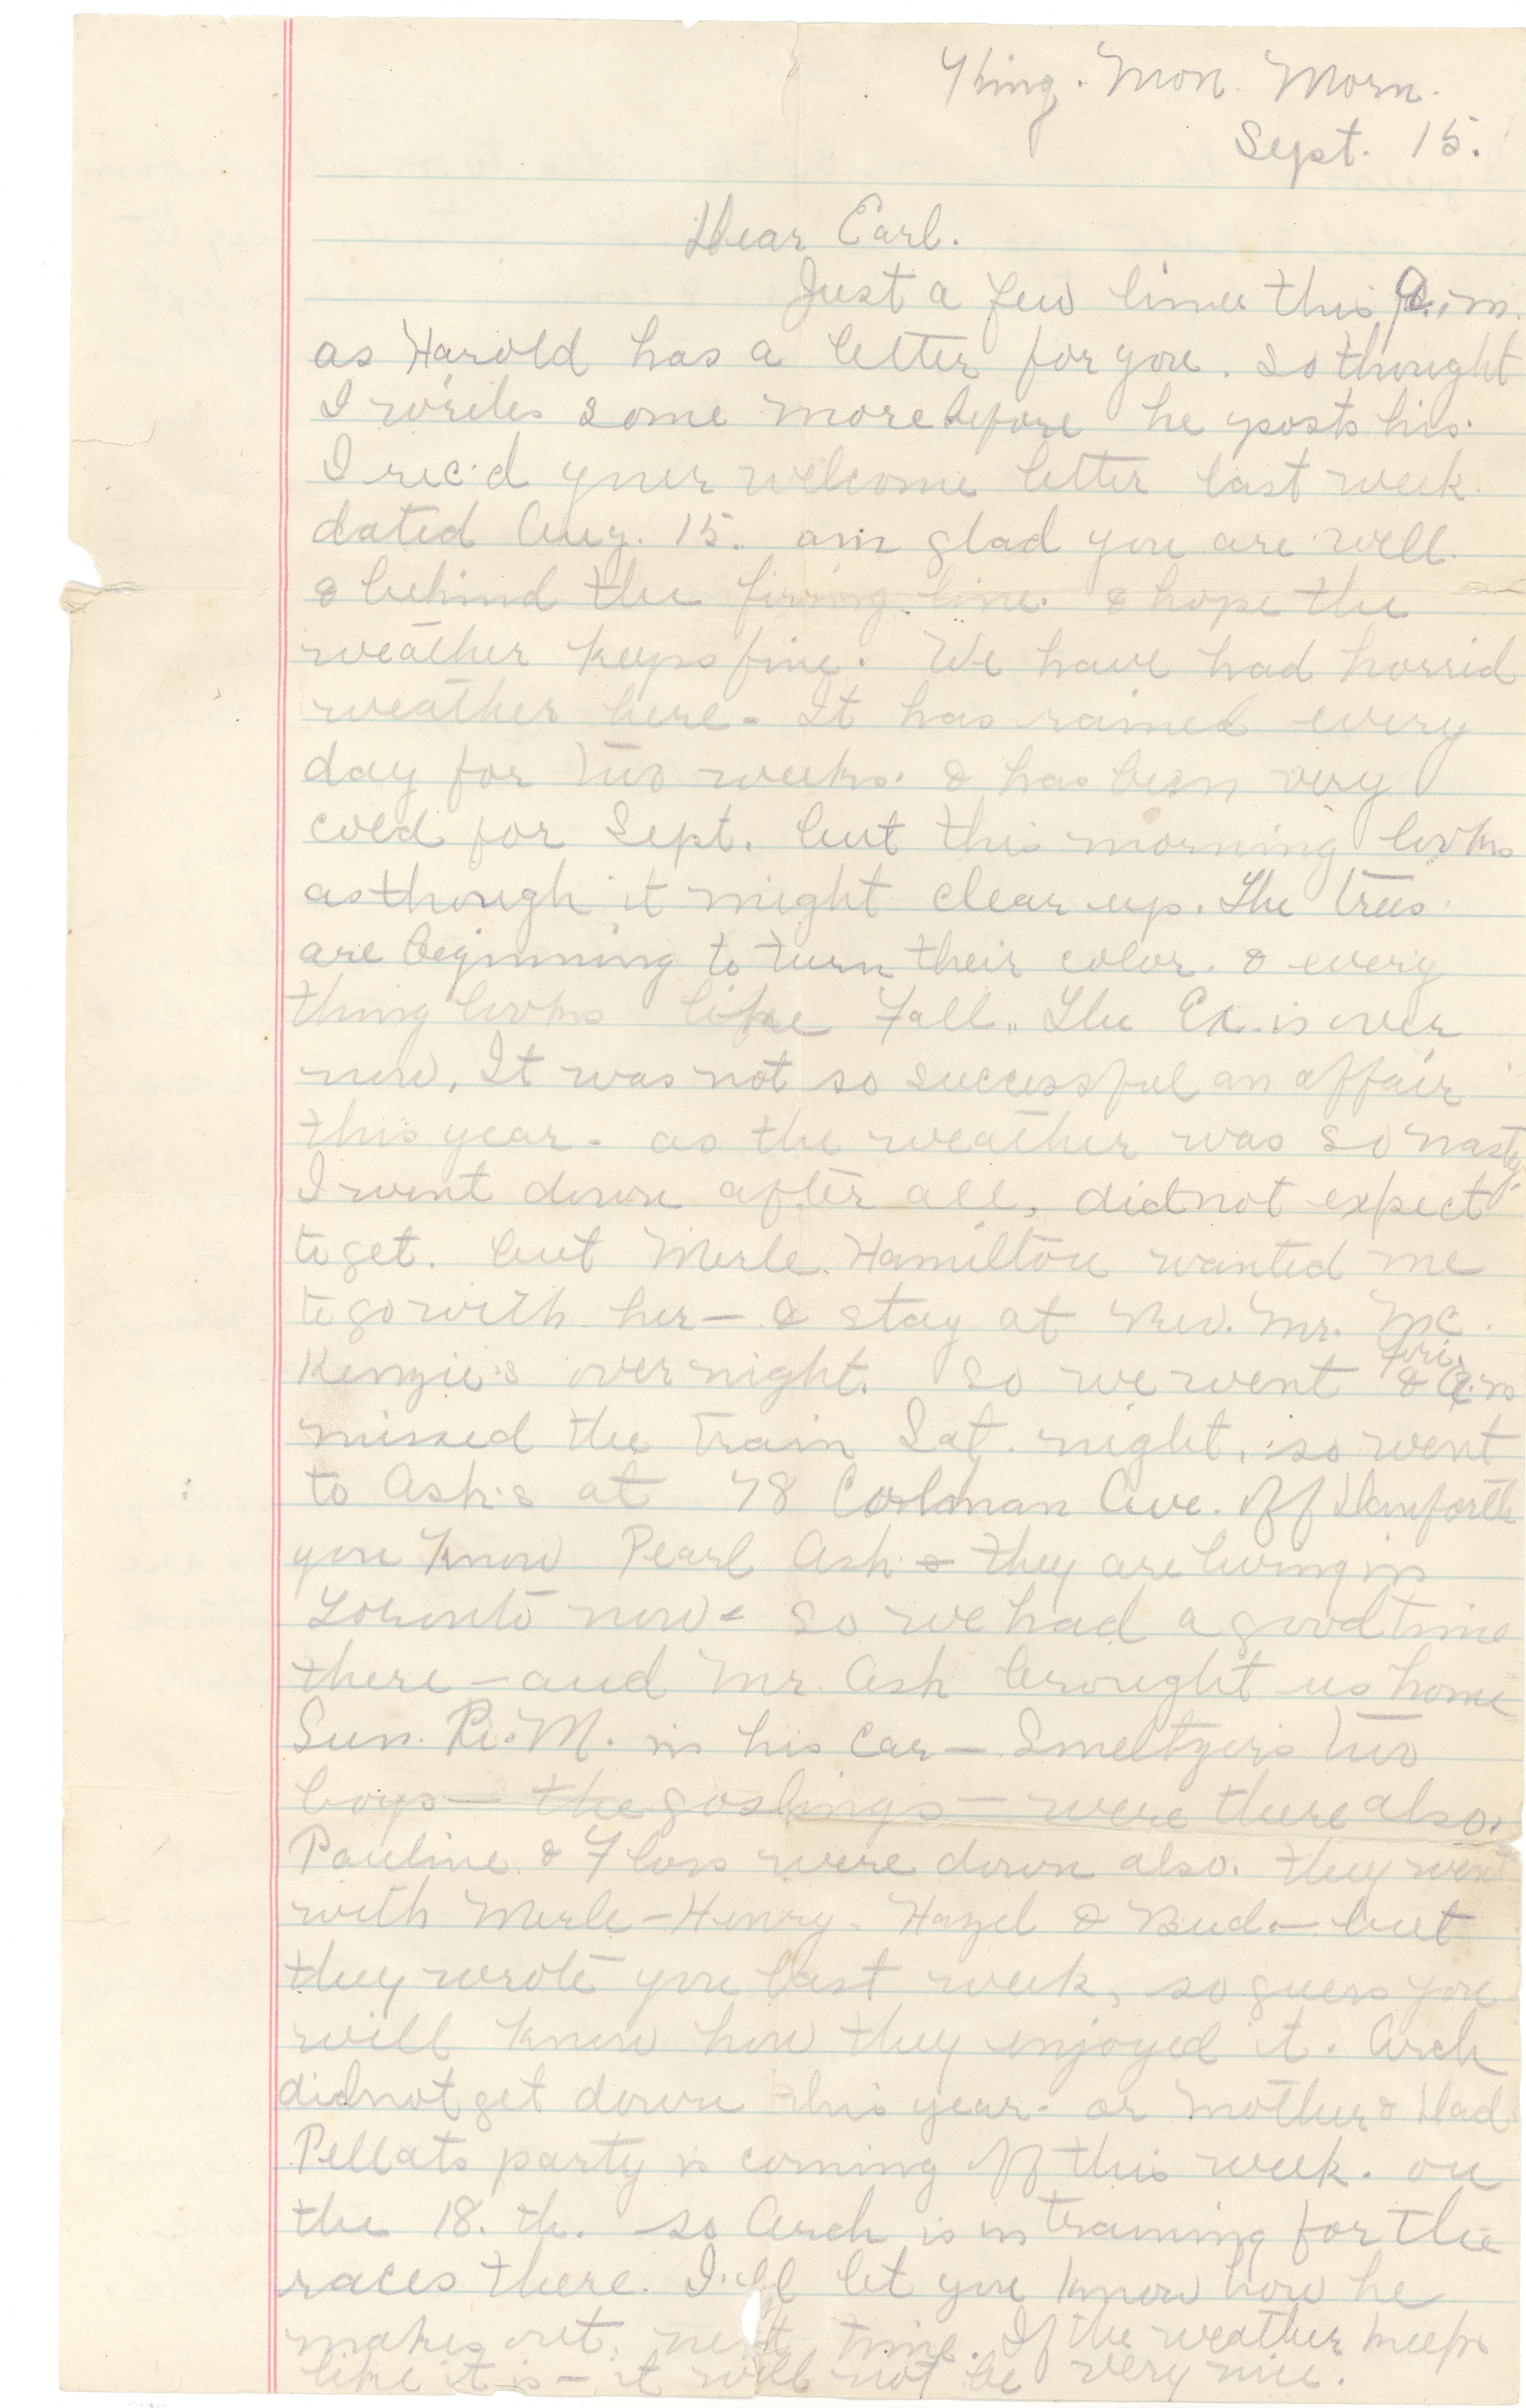 King. Mon. Morn.
Sept. 15.
Dear Earl.
Just a few lines this a.m.
as Harold has a letter for you. so thought
I write some more before he posts his.
I rec'd your welcome letter last week.
dated Aug. 15. am glad you are well.
& behind the firing line. & hope the
weather keeps fine. We have had horrid
weather here. It has rained every
day for two weeks. & has been very
cold for Sept. but this morning looks
as though it might clear up. The trees
are beginning to turn their color. & every
thing looks like Fall. The Ex. is over
now. It was not so successful an affair
this year. as the weather was so nasty
I went down after all, did not expect
to get. but Merle Hamilton wanted me
to go with her — & stay at Rev. Mr. Mc.
Kenzie's over night. so we went Fri. a.m
& missed the train Sat. night. so went
to Ash's at 78 Coleman Ave. Off Danforth
you know Pearl Ash & they are living in
Toronto now - so we had a good time
there — and Mr. Ash brought us home
Sun. P.M. in his Car — Smeltzer's two
boys — the goslings — were there also.
Pauline & Floss were down also. they went
with Merle - Henry - Hazel & Bud. — but
they wrote you last week, so guess you
will know how they enjoyed it. Arch
did not get down this year. or Mother & Dad
Pellats party is coming off this week. on
the 18. th. so Arch is in training for the
races there. I'll let you know how he
makes out next time. If the weather keeps
like it is — it will not be very nice.